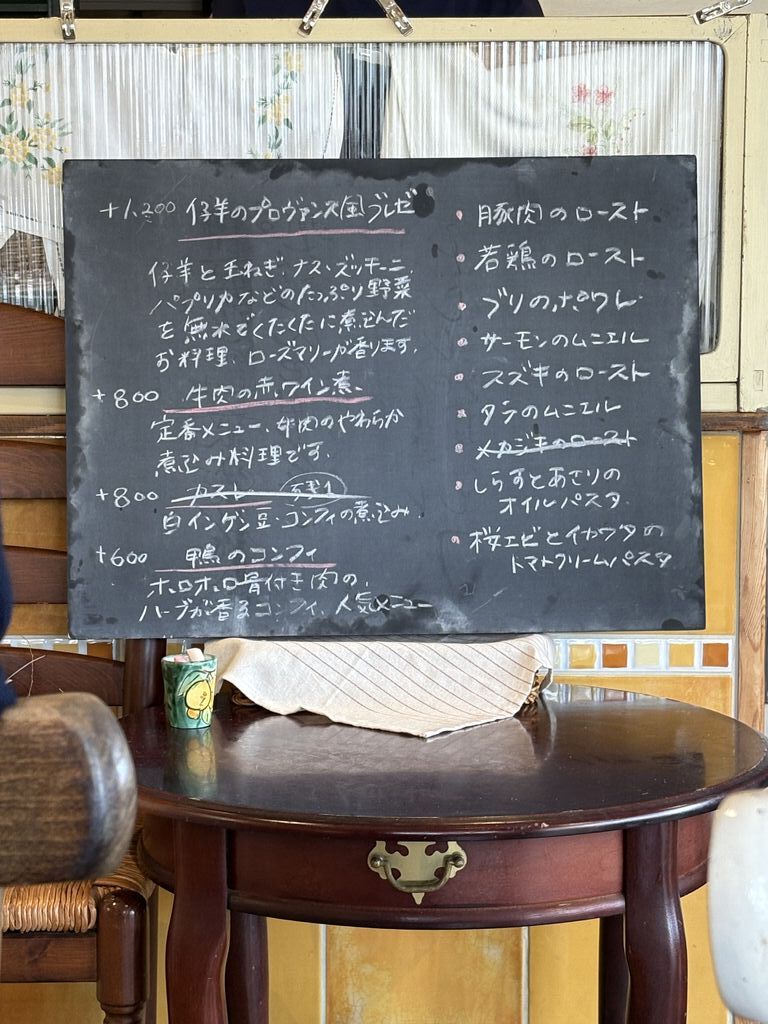 +1,200 仔羊のプロヴァンス風ブレゼ
仔羊と玉ねぎ、ナス・ズッキーニ
パプリカなどのたっぷり野菜
を無水でくたくたに煮込んだ
お料理、ローズマリーが香ります。
+800 牛肉の赤ワイン煮
定番メニュー、牛肉のやわらか
煮込み料理です。
+800 カスレ
白インゲン豆・コンフィの煮込み
+600 鴨のコンフィ
ホロホロ骨付き肉の、
ハーブが香るコンフィ、人気メニュー
・豚肉のロースト
・若鶏のロースト
・ブリのポワレ
・サーモンのムニエル
・スズキのロースト
・タラのムニエル
・メカジキのロースト
・しらすとあさりの
オイルパスタ
・桜エビとイカワタの
トマトクリームパスタ